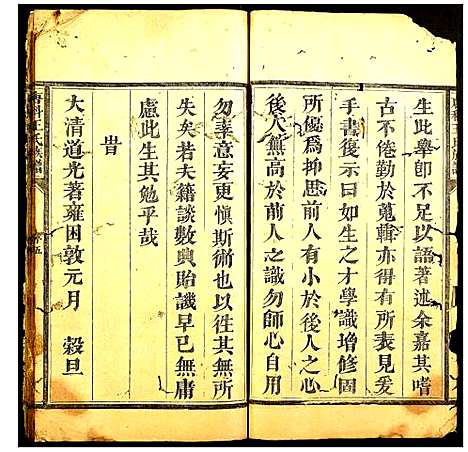 生此舉卽不足以語著述余嘉其嗜
古不倦勤於蒐輯亦得有所表見爰
手書復示曰如生之才學識增修固
所優爲抑思前人有小於後人之心
後人無高於前人之識勿師心自用
勿率意妄更愼斯術也以徃其無所
失矣若夫籍談數典貽譏早已無庸
慮此生其勉乎哉
旹
大清道光著雍困敦元月 穀旦
王氏族譜